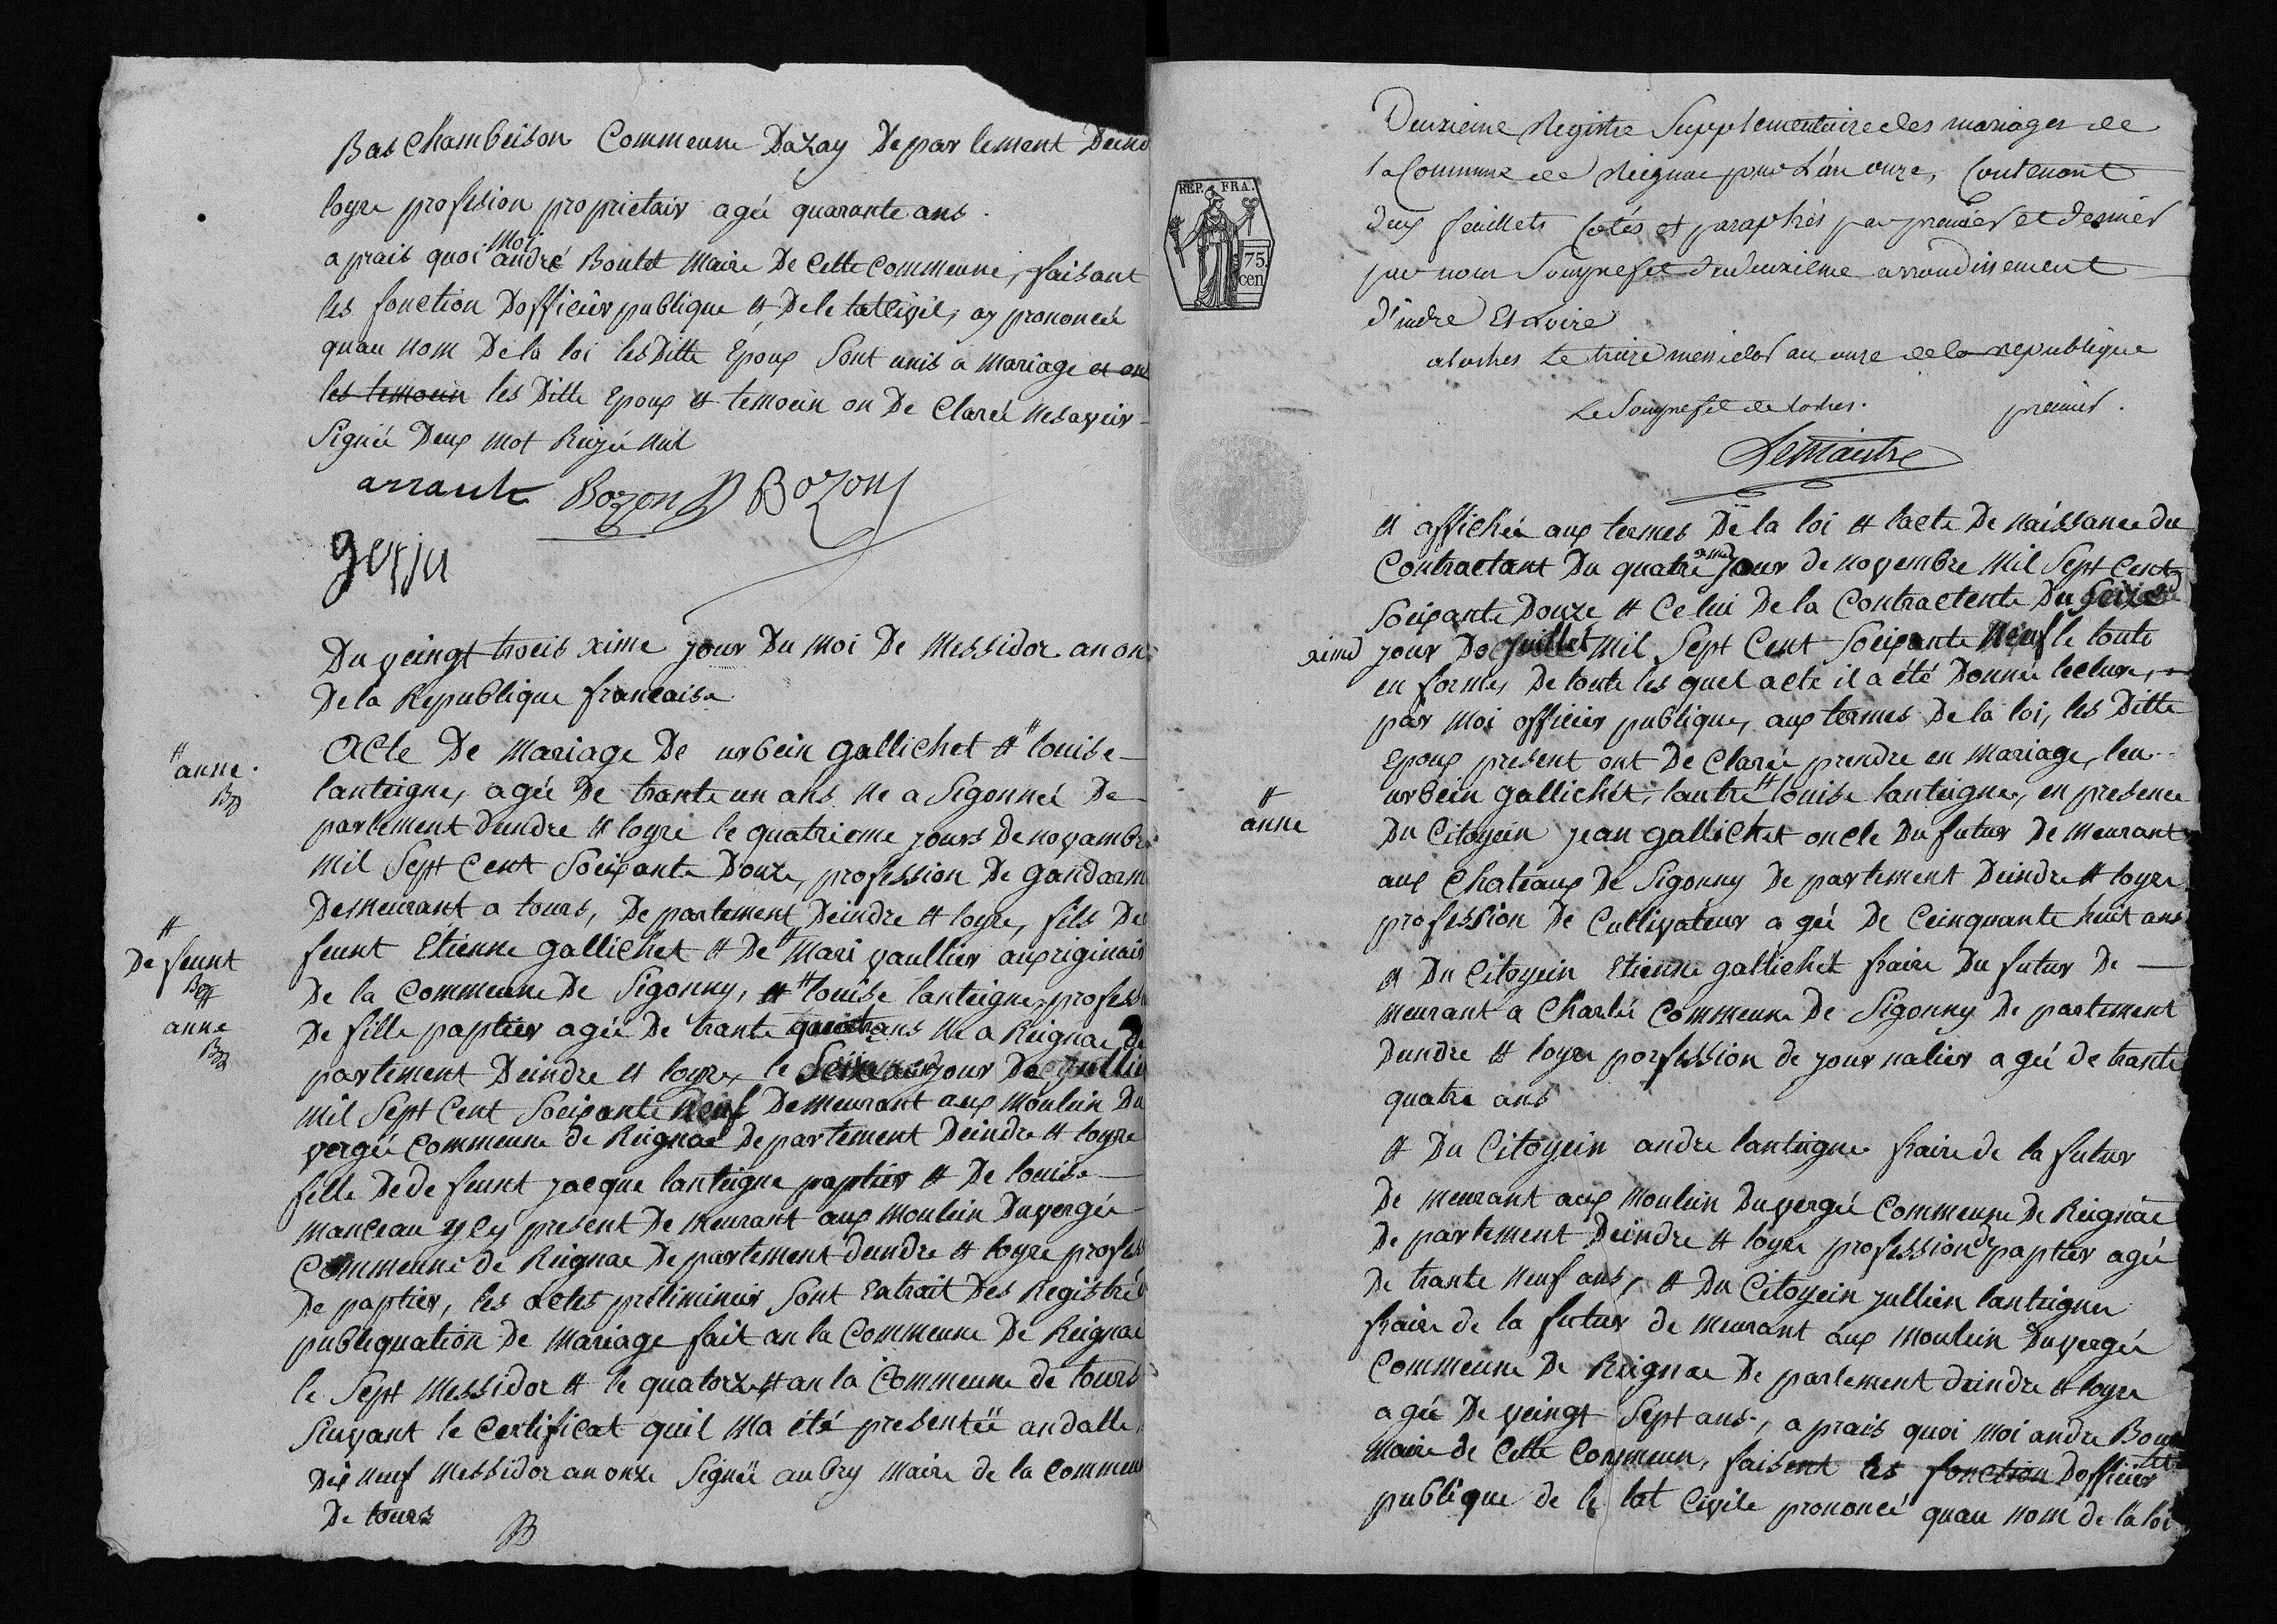 Bas Chambeison Commeune Dazay Departement Deind
loyre profession proprietair agée quarante ans.
aprais quoi Moi andré Boutet Maire De Cette Commeune, faisant
les fonction Dofficier publique et De le tat Civil, ay prononcée
quau Nom De la loi les Ditte Epoux Sont unis a Mariage et on
les temoein les Ditte Epoux et temoein on De Clarée Nesavoir
Signée Deux Mot Reyée Nul
arrault Bozon Bozon
Du veingt trois xime jour Du Moi De Messidor an on
De la Republique francaise
Acte De Mariage De urbein gallichet et " louise
" anne
lanteigne, agée De trante un ans Ne a Sigonnée De
partement deindre et loyre le quatrieme jours De Novambre
Mil Sept Cent Soixante Douze, profession De gandarme
Demeurant a tours, Departement Deindre et loyre, fils De
feunt Etienne gallichet et De " Mari vaullier aux riginair
De feunt
De la Commeune De Sigonny, et " louise lanteigne, profess
anne
De fille paptier agée De trante quatrans Ne a Reignac De
partement Deindre et loyre, le Seize jour De juillie
Mil Sept Cent Soixante Neuf Demeurant aux Moulein Du
vergée Commeune de Reignac Departement Deindre et loyre
fille De de feunt jacque lanteigne paptier et De louise
Manceau ycy present De Meurant aux Moulein Du vergée
Commeune de Reignac Departement deindre et loyre profess
De paptier, les actes prelimineir Sont Extrait Des Registre d
publiquation De Mariage fait an la Commeune De Reignac
le Sept Messidor et le quatorze et an la Commeune de tours
Suivant le Certificat quil Ma été presentée an dalle
Dix Neuf Messidor an onze Signée aubry Maire de la Commeun
De tours
Deuxieme Registre Supplementaire des mariages de
la Commune de Reignac pour L'an onze, Contenant
deux feuillets Cotés et paraphés par premier et dernier
par nous Souprefet du deuxieme arrondissement
d'indre Et Loire
a loches Le treize messidor an onze de la republique
Le Souprefet de Loches. premier.
Lemaistre
REP. FRA.
75
cen
et affichée aux termes De la loi et lacte De Naissance du
Contractant Du quatri eme jour de Novembre Mil Sept Cent
Soixante Douze et Celui De la Contractente Du Seize
xime jour De juillet Mil Sept Cent Soixante Neuf le toute
en forme, De toute les quel acte il a été Donnée lecture,
par Moi officier publique, aux termes De la loi, les Ditte
Epoux present ont De Clarée prendre en Mariage, leu
urbein gallichet, lautre " louise lanteigne, en presence
anne
Du Citoyein jean gallichet oncle Du futur De Meurant
aux Chateaux De Sigonny De partement Deindre et loyre
profession De Cultivateur a gée De Ceinquante huit ans
et Du Citoyein Etienne gallichet fraire Du futur De
meurant a Charlée Commeune De Sigonny De partement
Deindre et loyre porfession de journalier a gée de trante
quatre ans
et Du Citoyein andre lanteigne fraire de la futur
De meurant aux Moulein Du vergée Commeune De Reignac
De partement Deindre et loyre profession de paptier agée
De trante Neuf ans, et Du Citoyein jullien lanteigne
fraire de la futur de meurant aux Moulein Du vergée
Commeune De Reignac De partement deindre et loyre
agée De veingt Sept ans, a prais quoi Moi andre Boutet
Maire de Cette Commeun, faisent les fonction Dofficier
publique de le tat Civile prononcé quau Nom de la loi